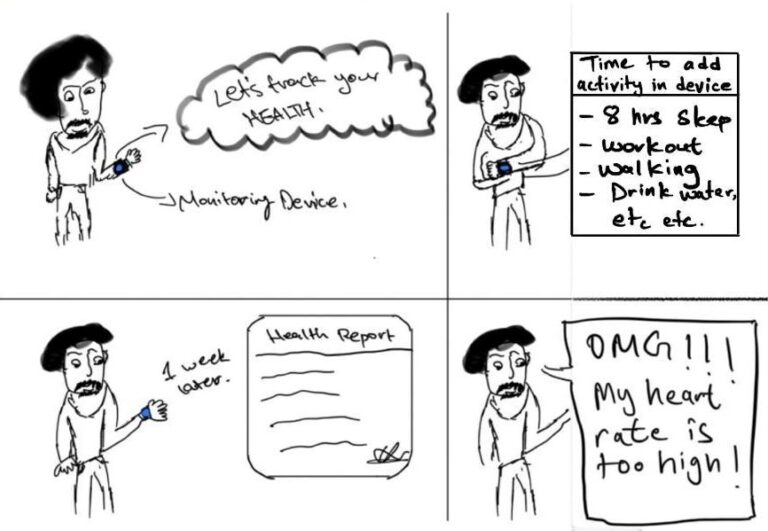 Let's track your
HEALTH.
Monitoring Device.
Time to add
activity in device
- 8 hrs Sleep
- workout
- walking
- Drink water,
etc etc.
1 week
later.
Health Report
OMG!!!
My heart
rate is
too high!